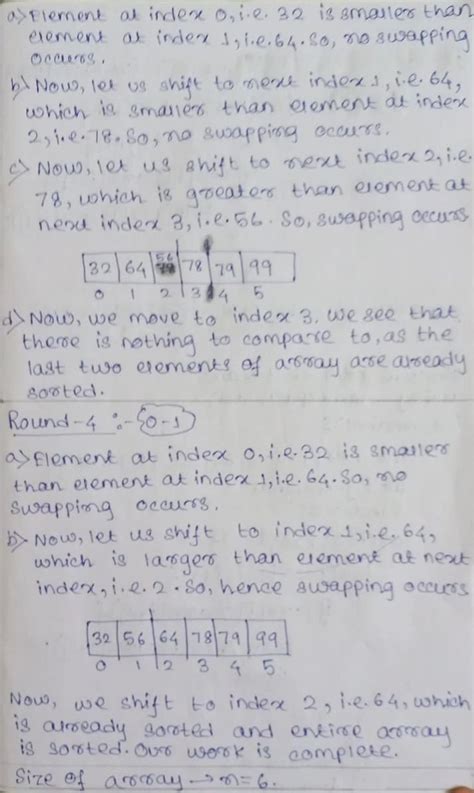 a) Element at index 0, i.e. 32 is smaller than
element at index 1, i.e. 64. So, no swapping
occurs.
b) Now, let us shift to next index 1, i.e. 64,
which is smaller than element at index
2, i.e. 78. So, no swapping occurs.
c) Now, let us shift to next index 2, i.e.
78, which is greater than element at
next index 3, i.e. 56. So, swapping occurs
32 64 56 78 79 99
0 1 2 3 4 5
d) Now, we move to index 3. we see that
there is nothing to compare to, as the
last two elements of array are already
sorted.
Round-4 :- {0-1}
a) Element at index 0, i.e. 32 is smaller
than element at index 1, i.e. 64. So, no
swapping occurs.
b) Now, let us shift to index 1, i.e. 64,
which is larger than element at next
index, i.e. 2. So, hence swapping occurs
32 56 64 78 79 99
0 1 2 3 4 5
Now, we shift to index 2, i.e. 64, which
is already sorted and entire array
is sorted. Our work is complete.
Size of array → n=6.